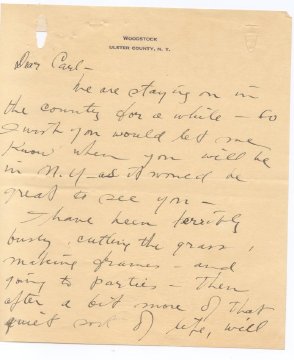 WOODSTOCK
ULSTER COUNTY, N. Y.
Dear Carl —
We are staying on in
the country for a while — so
I wish you would let me
know when you will be
in N.Y — as it would be
great to see you —
I have been terribly
busy, cutting the grass,
making frames — and
going to parties — Then
after a bit more of that
quiet sort of life, will